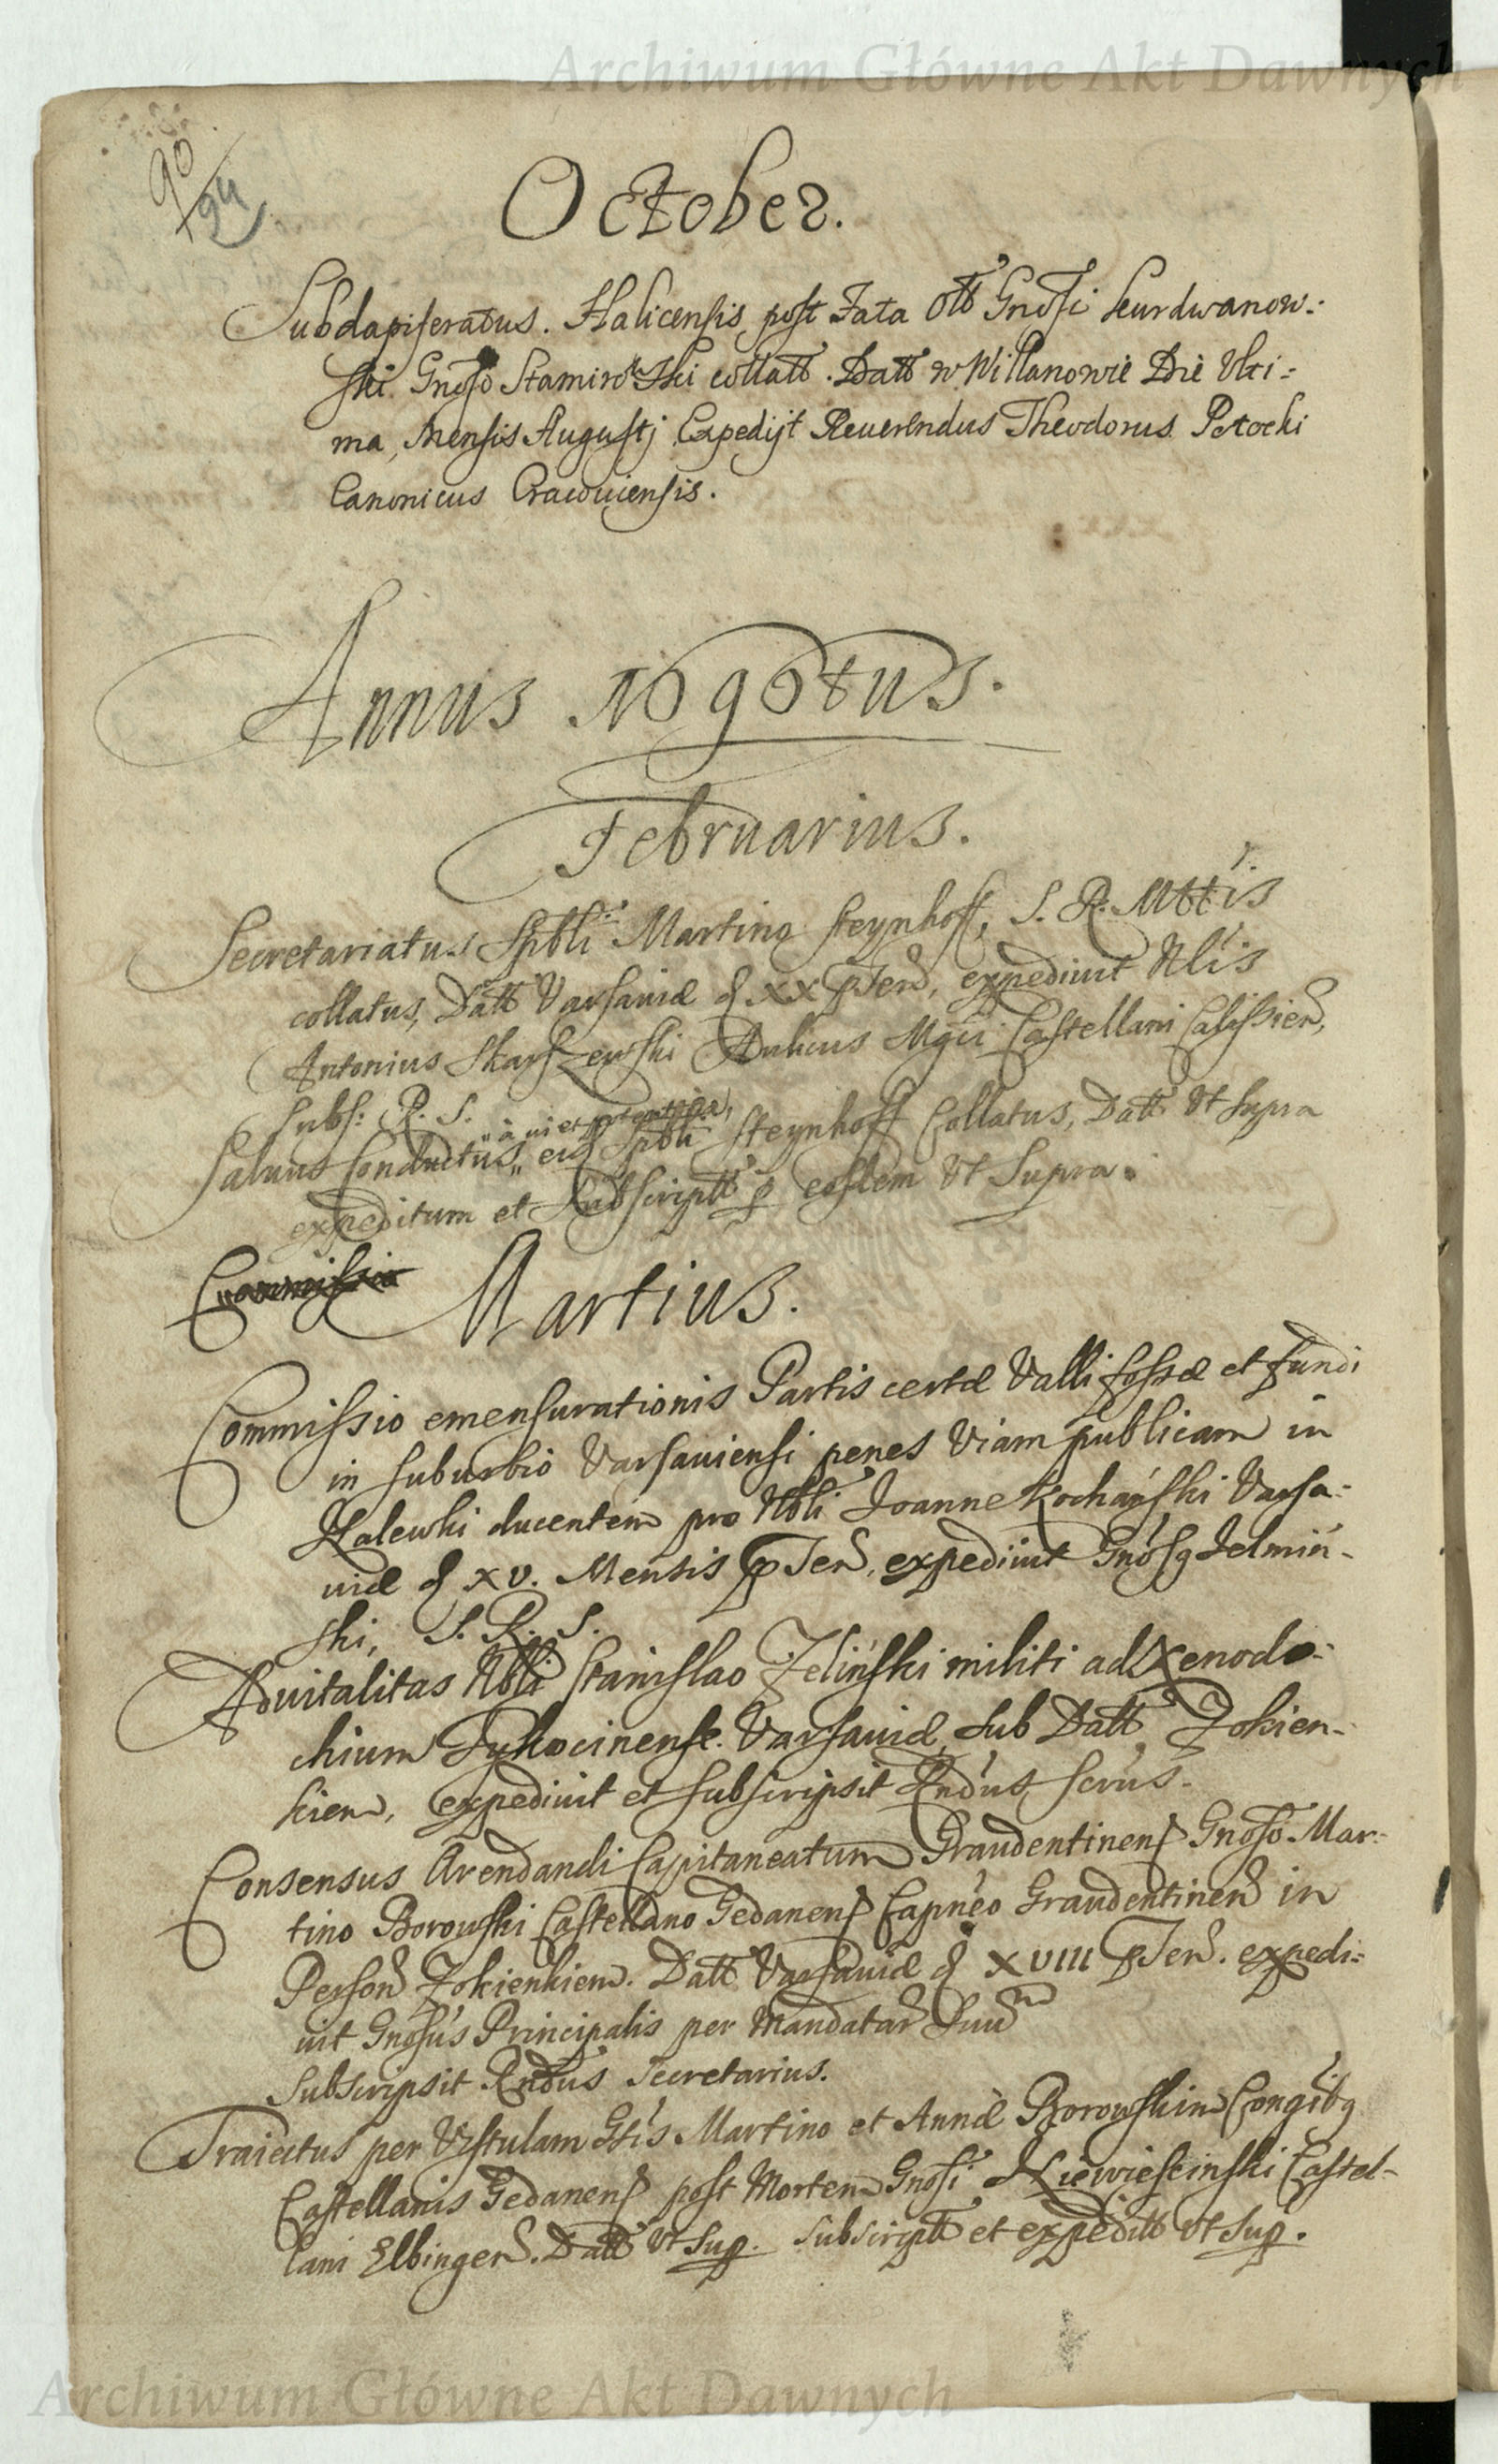 Archiwum Główne Akt Dawnych
90
94
October.
Subdapiferatus. Halicensis post Fata Olb Gnosi Kurdwanow:
ski Gnoso Stamirowski collatt. Datt w Willanowie Die Ulti:
ma, Mensis Augustj Expedijt Reuerendus Theodorus Potocki
Canonicus Cracouiensis.
Annus 1696tus.
Februarius.
Secretariatus Spbli Martino Steynhoff, S. R. Mttis
collatus, Datt Varsauiæ d XX pnter, expediuit Nlis
Antonius Skarszewski Aulicus Mgci Castellani Calissien,
subs: R. S.
"à ui et potentia,
Saluus Conductus" eid Spbli Steynhoff Collatus, Datt Ut Supra
expeditum et Subscriptt p eosdem Ut Supra.
Commissio Martius.
Commissio emensurationis Partis certæ Valli fossæ et fundi
in suburbio Varsauiensi penes Viam publicam in
Nalewki ducentem pro Nbli Joanne Kochański Varsa:
uiæ d XV. Mensis pnter, expediuit Gnosq Jelmiń-
ski, S. R. S.
Aduitalitas Nbli Stanislao Zeliński militi ad Xenodo:
chium Tykocinense. Varsauiæ, sub Datt Zokien-
kien, expediuit et subscripsit Rndus scrus.
Consensus Arendandi Capitaneatum Graudentinens Gnoso Mar:
tino Borowski Castellano Gedanens Capneo Graudentinen in
Person Zokienkien. Datt Varsauiæ d XVIII pnter. expedi:
uit Gnosus Principalis per Mandatar suum
Subscripsit Rndus Secretarius.
Traiectus per Vistulam Gsis Martino et Annæ Borowskim Congibq
Castellanis Gedanens post Mortem Gnosi Niewiescinski Castel-
lani Elbingen. Datt Ut Sup. Subscriptt et expeditt Ut Sup.
Archiwum Główne Akt Dawnych